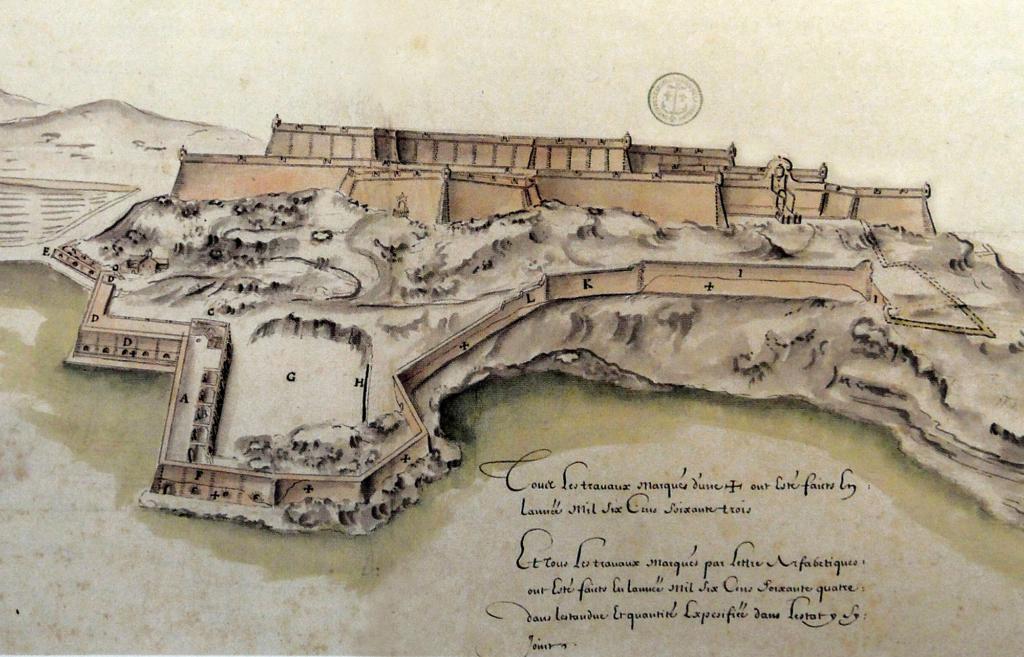 I
E
K
L
I
D
C
D
D
G
H
A
F
Tous les travaux marqués dune + ont esté faicts En
Lannéé Mil Six Cens Soixante trois
Et tous Les travaux marqués par Lettre Alfabetiques
ont Esté faicts En Lannéé Mil Six Cens Soixante quatre
dans lestandue Et quantité Expesifiéé dans Lestat y Cy
Joint